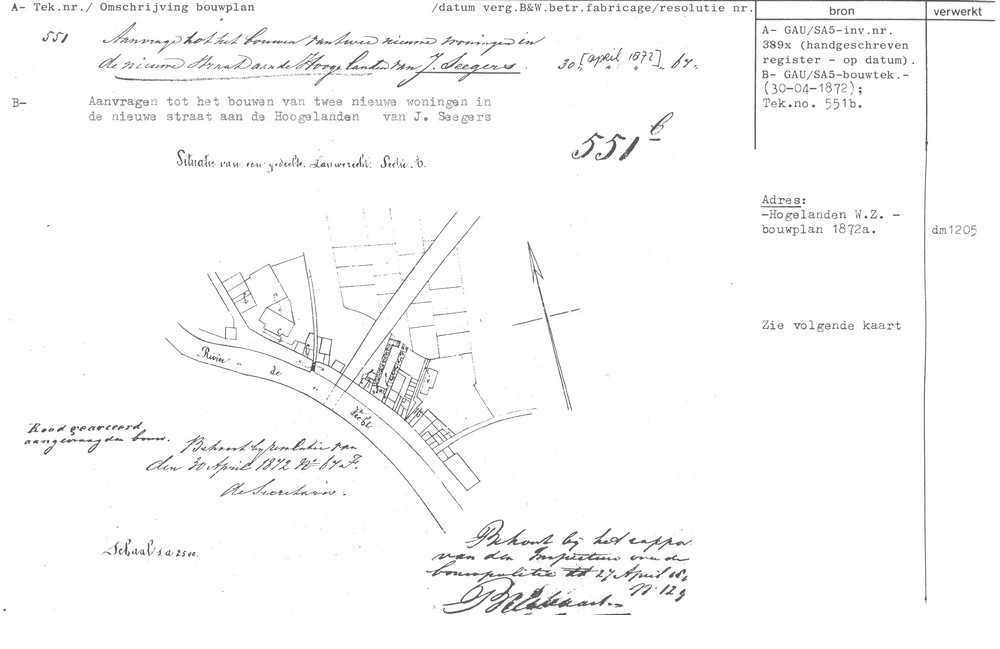 A- Tek.nr./ Omschrijving bouwplan /datum verg.B&W.betr.fabricage/resolutie nr.
bron
verwerkt
551 Aanvrage tot het bouwen van twee nieuwe woningen in
de nieuwe straat aan de Hooge landen van J. Seegers 30 [april 1872] 67.
B- Aanvragen tot het bouwen van twee nieuwe woningen in
de nieuwe straat aan de Hoogelanden van J. Seegers
551 b
Situatie van een gedeelte Lauwerecht. Sectie A.
A- GAU/SA5-inv.nr.
389x (handgeschreven
register - op datum).
B- GAU/SA5-bouwtek.-
(30-04-1872);
Tek.no. 551b.
Adres:
-Hogelanden W.Z. -
bouwplan 1872a.
dm1205
Zie volgende kaart
Rivier de Vecht
Rood gearceerd
aangevraagden bouw.
Behoort bij resolutie van
den 30 April 1872 No 67 F.
de Secretaris.
Schaal 1 a 2500.
Behoort bij het rappo
van den Inspecteur van de
bouwpolitie 27 April
N. 129